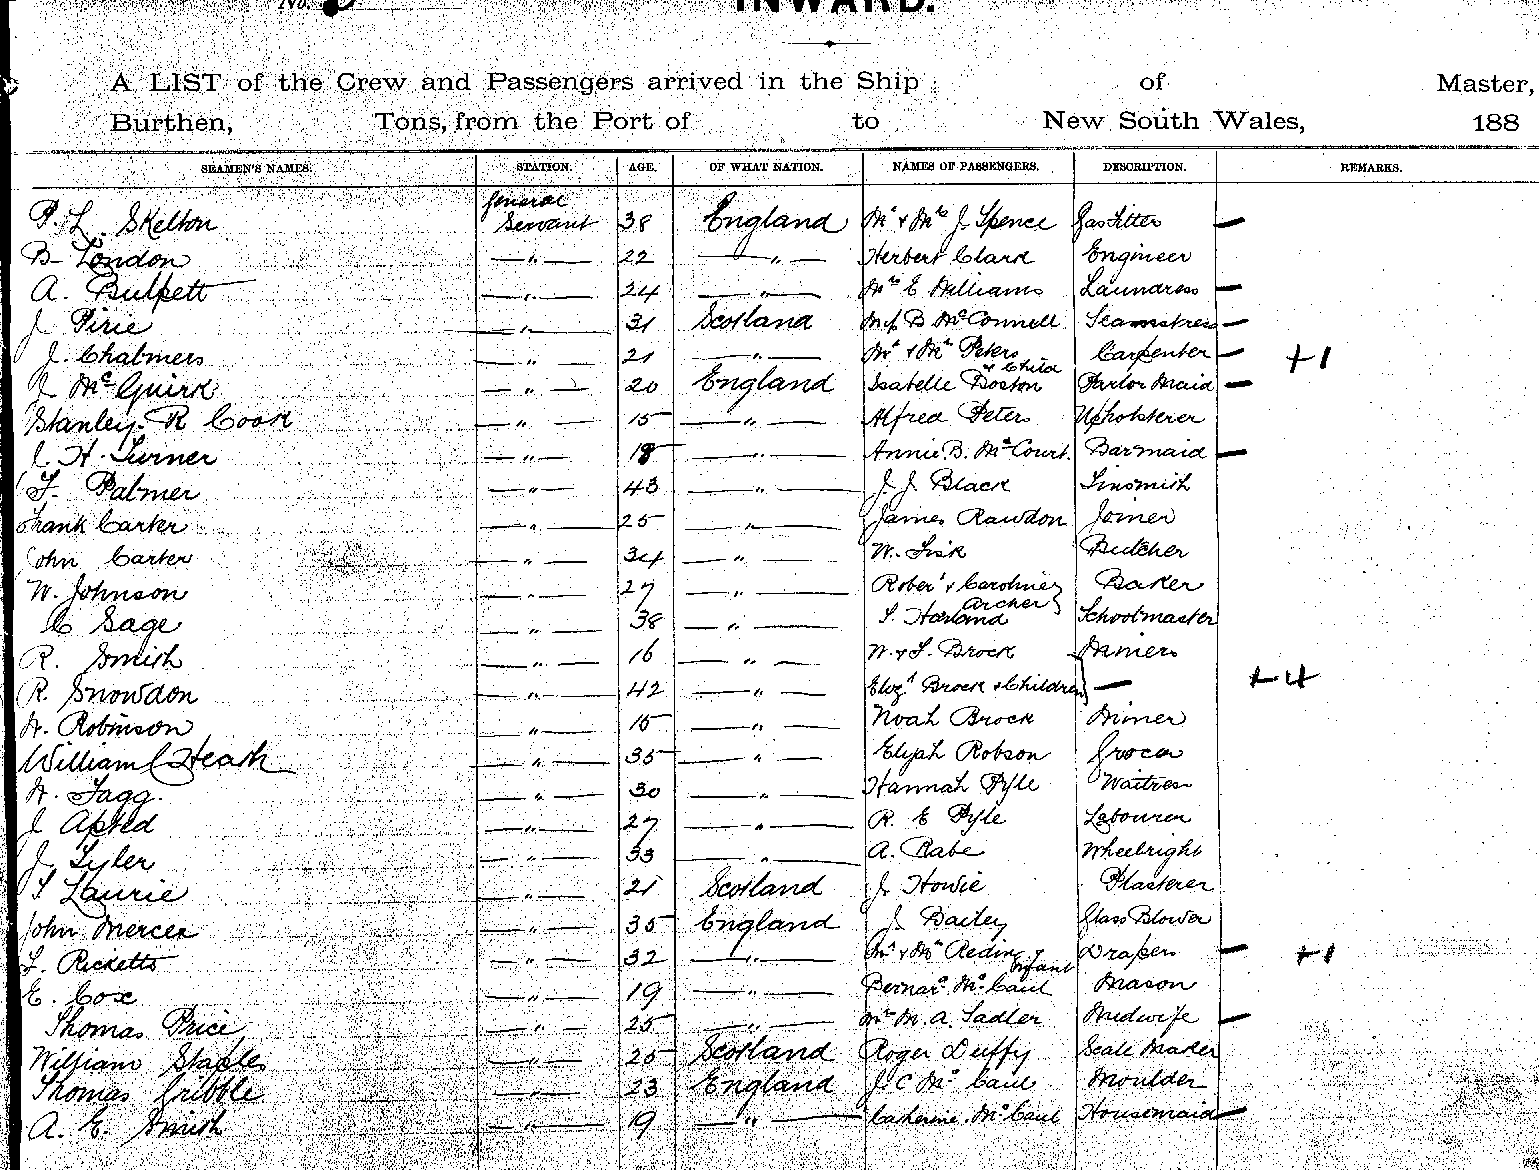 No.
INWARD.
A LIST of the Crew and Passengers arrived in the Ship of Master,
Burthen, Tons, from the Port of to New South Wales, 188
SEAMEN'S NAMES. STATION. AGE. OF WHAT NATION. NAMES OF PASSENGERS. DESCRIPTION. REMARKS.
P. L. Skelton General Servant 38 England Mr & Mrs J Spence Gas Fitter —
B London — " — 22 — " — Herbert Clark Engineer
A. Bulpett — " — 24 — " — Mrs E Williams Laundress —
J Pirie — " — 31 Scotland B McConnell Seamstress —
J. Chalmers — " — 21 — " — Mr & Mrs Peters & Child Carpenter — +1
J McGuirk — " — 20 England Isabelle Boston Parlor Maid —
Stanley R Cook — " — 15 — " — Alfred Peter Upholsterer
J. H. Turner — " — 18 — " — Annie B. McCourt. Barmaid —
F. Palmer — " — 43 — " — J. J. Black Tinsmith
Frank Carter — " — 25 — " — James Rawdon Joiner
John Carter — " — 34 — " — W. Fisk Butcher
W. Johnson — " — 27 — " — Robert & Caroline Archer Baker
C Sage — " — 38 — " — S. Harland Schoolmaster
R. Smith — " — 16 — " — W. & S. Brock Miners
R. Snowdon — " — 42 — " — Elizth Brock & Children — +4
H. Robinson — " — 15 — " — Noah Brock Miner
William C Heath — " — 35 — " — Elijah Robson Grocer
H. Fagg. — " — 30 — " — Hannah Pyle Waitress
J Apted — " — 27 — " — R. E Pyle Labourer
J. Tyler — " — 33 — " — A. Rabe Wheelright
Laurie — " — 21 Scotland J. Howie Plasterer
John Mercer — " — 35 England J. Bailey Glass Blower
F. Ricketts — " — 32 — " — Mr & Mrs Reding & Infant Drapers — +1
E. Cox — " — 19 — " — Bernard McCaul Mason
Thomas Price — " — 25 — " — Mrs M. A. Sadler Midwife —
William Staples — " — 25 Scotland Roger Duffy Scale Maker
Thomas Gribble — " — 23 England J. C McCaul Moulder
A. E. Smith — " — 19 — " — Catherine McCaul Housemaid —